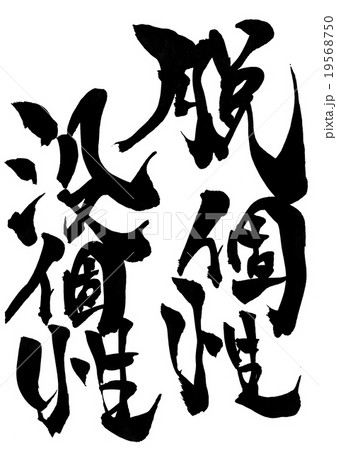 脱個性
没個性
pixta.jp - 19568750
PIXTA